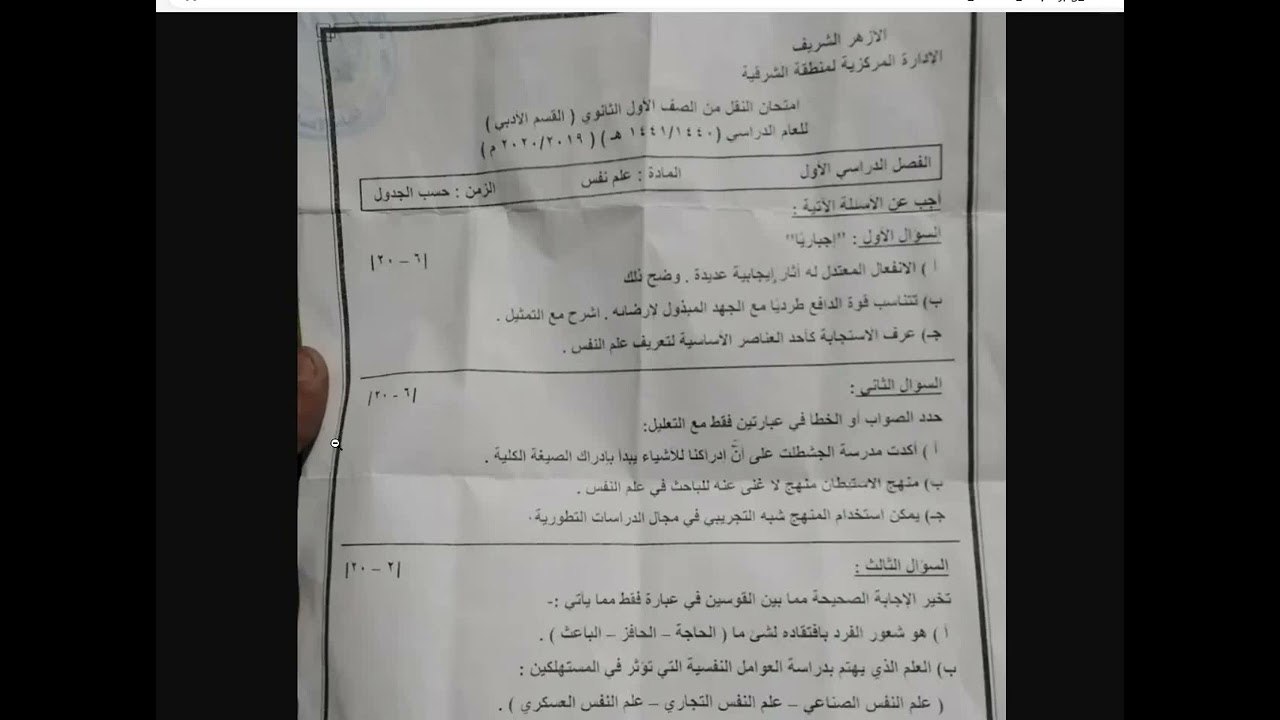 الأزهر الشريف
الإدارة المركزية لمنطقة الشرقية
امتحان النقل من الصف الأول الثانوي ( القسم الأدبي )
للعام الدراسي (١٤٤١/١٤٤٠ هـ ) ( ٢٠٢٠/٢٠١٩ م )
الفصل الدراسي الأول المادة : علم نفس الزمن : حسب الجدول
أجب عن الأسئلة الآتية :
السؤال الأول : "إجباريًا" |٢٠ – ٦|
أ ) الانفعال المعتدل له أثار إيجابية عديدة . وضح ذلك
ب) تتناسب قوة الدافع طرديًا مع الجهد المبذول لارضائه . اشرح مع التمثيل .
جـ) عرف الاستجابة كأحد العناصر الأساسية لتعريف علم النفس .
السؤال الثاني : |٢٠ – ٦|
حدد الصواب أو الخطأ في عبارتين فقط مع التعليل:
أ ) أكدت مدرسة الجشطلت على أنَّ إدراكنا للأشياء يبدأ بإدراك الصيغة الكلية .
ب) منهج الاستبطان منهج لا غنى عنه للباحث في علم النفس .
جـ) يمكن استخدام المنهج شبه التجريبي في مجال الدراسات التطورية.
السؤال الثالث : |٢٠ – ٢|
تخير الإجابة الصحيحة مما بين القوسين في عبارة فقط مما يأتي :-
أ ) هو شعور الفرد بافتقاده لشئ ما ( الحاجة – الحافز – الباعث ) .
ب) العلم الذي يهتم بدراسة العوامل النفسية التي تؤثر في المستهلكين :
( علم النفس الصناعي – علم النفس التجاري – علم النفس العسكري ) .